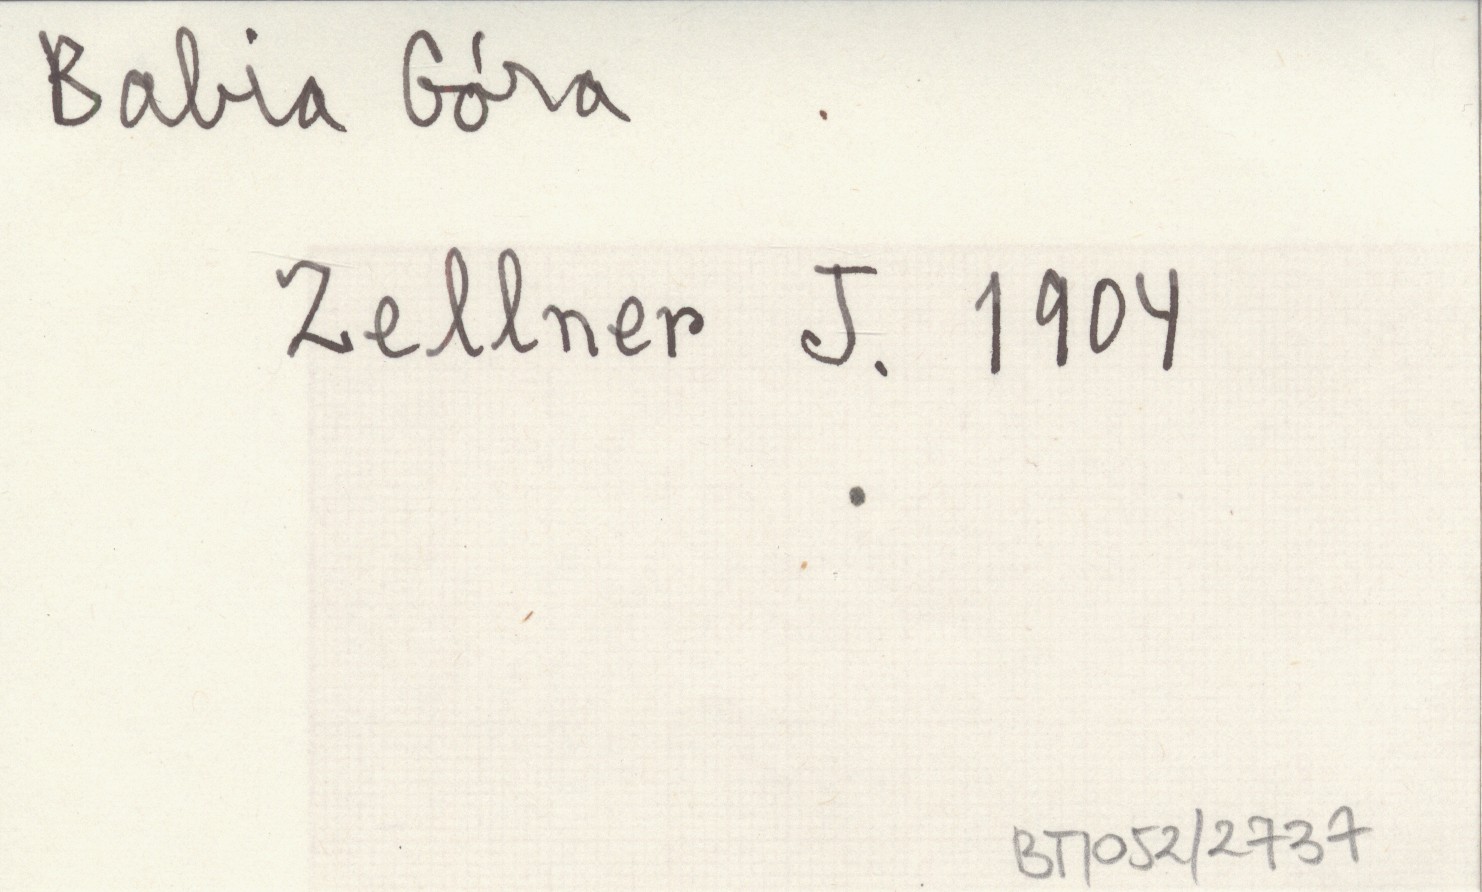 Babia Góra
Zellner J. 1904
BT1052/2737